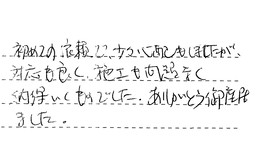 初めての依頼で、少々心配もしましたが、
対応も良く、施工も問題なく
納得いくものでした。ありがとう御座居
ました。